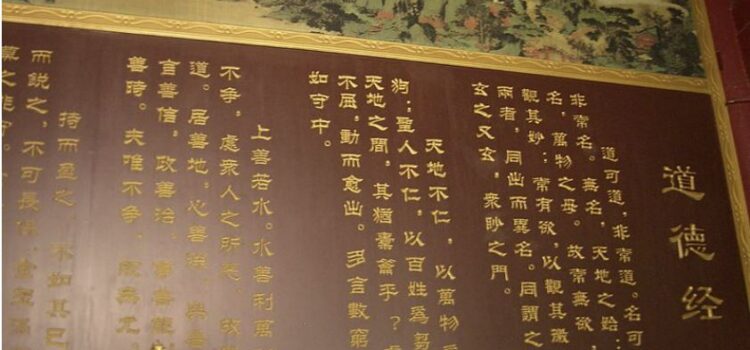 道德经
道可道,非常道。名可
非常名。無名,天地之始;
名,萬物之母。故常無欲,
觀其妙;常有欲,以觀其徼
兩者,同出而異名。同謂之
玄之又玄,衆眇之門。
天地不仁,以萬物
狗;聖人不仁,以百姓爲芻
天地之間,其猶橐籥乎?
不屈,動而愈出。多言數窮
如守中。
上善若水。水善利萬
不争,處衆人之所惡,故
道。居善地,心善淵,與善
言善信,政善治,事善能
善時。夫唯不争,故無尤。
持而盈之,不如其已
而銳之,不可長保,金玉滿
莫之能守。